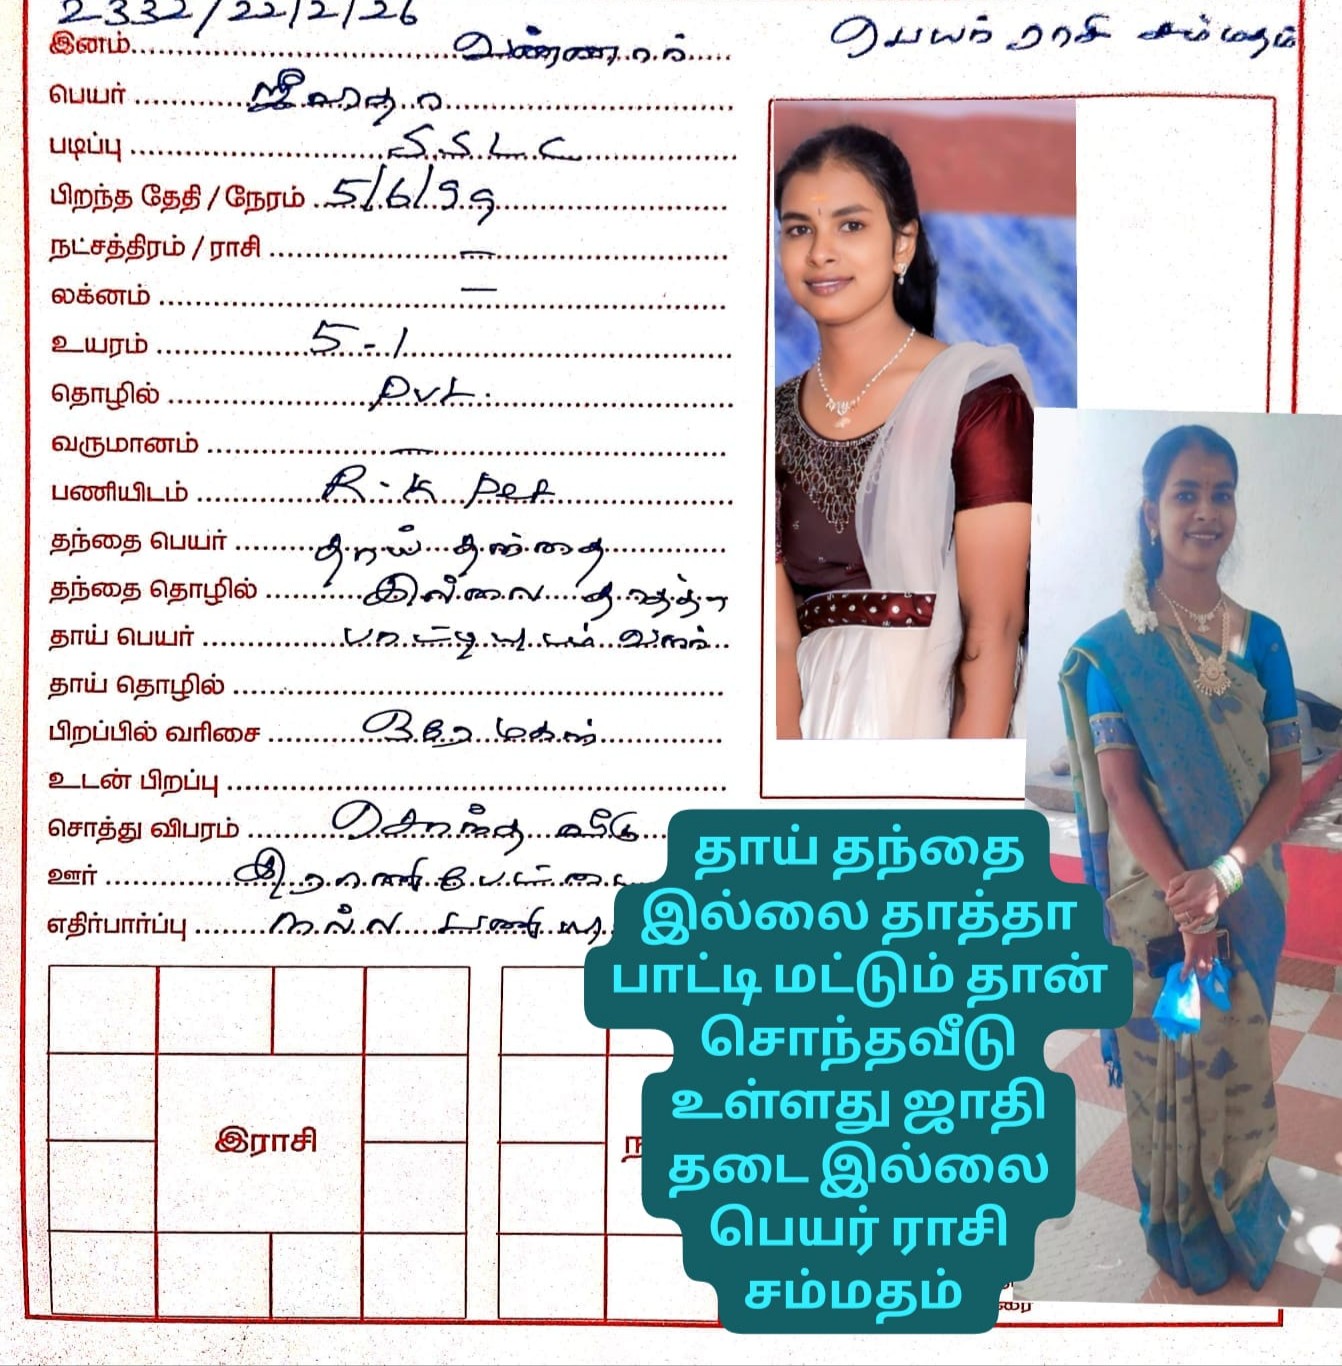 2332/22/2/26
பெயர் ராசி சம்மதம்
இனம். வண்ணார்
பெயர் ஜீவிதா
படிப்பு S.S.L.C
பிறந்த தேதி / நேரம் 5/6/99
நட்சத்திரம் / ராசி —
லக்னம் —
உயரம் 5-1
தொழில் Pvt.
வருமானம் —
பணியிடம் R.K
தந்தை பெயர் தாய் தந்தை
தந்தை தொழில் இல்லை தாத்தா
தாய் பெயர் பாட்டி
தாய் தொழில்
பிறப்பில் வரிசை ஒரே மகள்
உடன் பிறப்பு
சொத்து விபரம் சொந்த வீடு
ஊர் இராணிபேட்டை
எதிர்பார்ப்பு நல்ல
தாய் தந்தை
இல்லை தாத்தா
பாட்டி மட்டும் தான்
சொந்தவீடு
உள்ளது ஜாதி
தடை இல்லை
பெயர் ராசி
சம்மதம்
இராசி